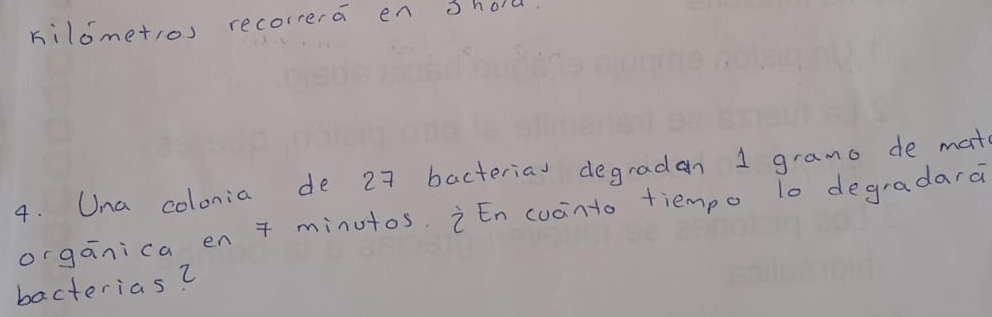 Kilómetros recorrerá en 3 hora.
4. Una colonia de 27 bacterias degradan 1 gramo de mat
orgánica en 7 minutos. ¿En cuánto tiempo lo degradará
bacterias?